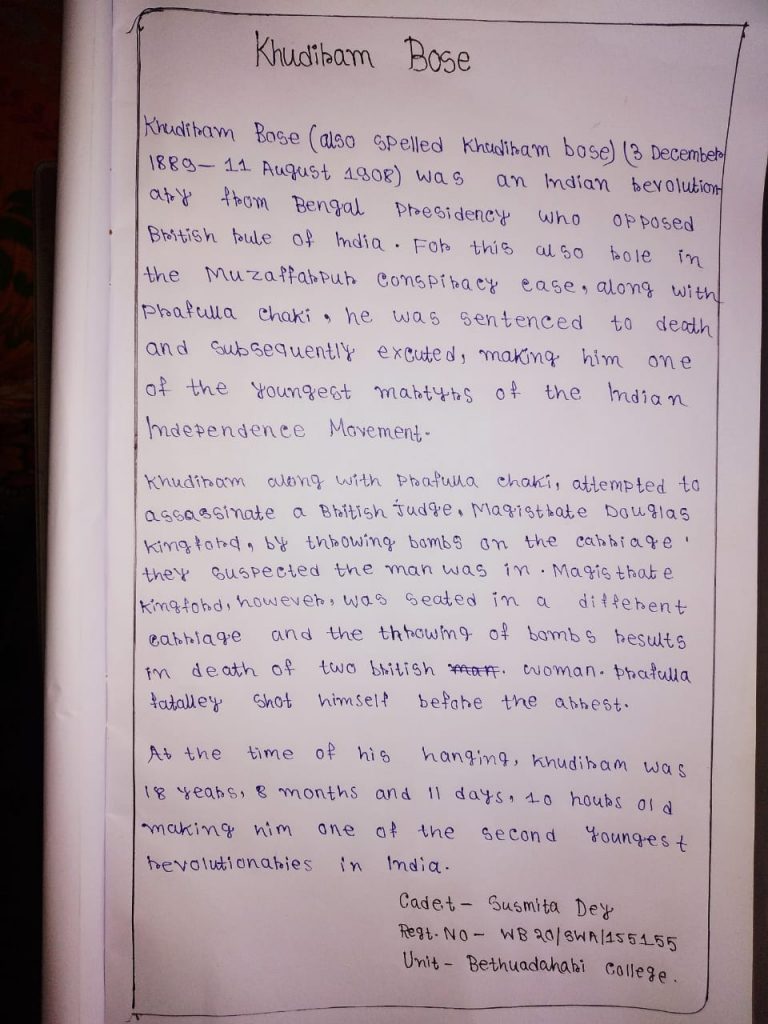 Khudiram Bose
Khudiram Bose (also spelled Khudiram bose) (3 December
1889- 11 August 1908) was an Indian revolution
ary from Bengal Presidency who opposed
British rule of India. For this also role in
the Muzaffarpur conspiracy case, along with
Prafulla chaki, he was sentenced to death
and subsequently excuted, making him one
of the youngest martyrs of the Indian
Independence Movement.
Khudiram along with Prafulla chaki, attempted to
assassinate a British judge, Magistrate Douglas
kingford, by throwing bombs on the carriage
they suspected the man was in. Magistrate
kingford, however, was seated in a different
carriage and the throwing of bombs results
in death of two british man. woman. Prafulla
fatalley shot himself before the arrest.
At the time of his hanging, Khudiram was
18 years, 8 months and 11 days, 10 hours old
making him one of the second youngest
revolutionaries in India.
Cadet- Susmita Dey
Regt. No- WB20/SWA/155155
Unit- Bethuadahari college.